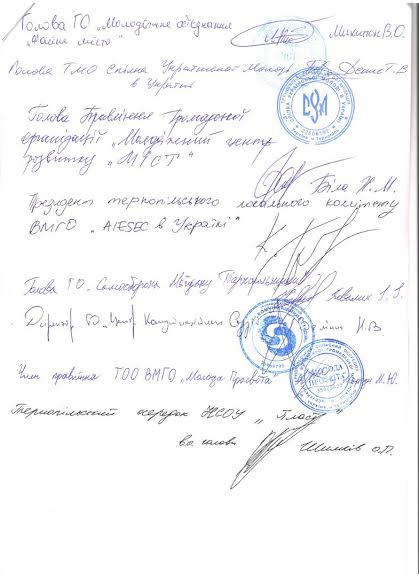 Голова ГО „Молодіжне об'єднання
„Файне місто"
Микитюк В.О.
Голова ТМО Спілка Української Молоді
в Україні
Т.В.
Голова Правління Громадської
організації „Молодіжний центр
розвитку „МІСТ"
Біла Х.М.
Президент тернопільського локального комітету
ВМГО „AIESEC в Україні"
Голова ГО „Самооборона Майдану Тернопільщини"
Директор ГО „Центр
Н.В
Член правління ТОО ВМГО „Молода Просвіта"
М.Ю.
Тернопільський осередок НСОУ „Пласт"
в.о. голови
Шимків О.П.